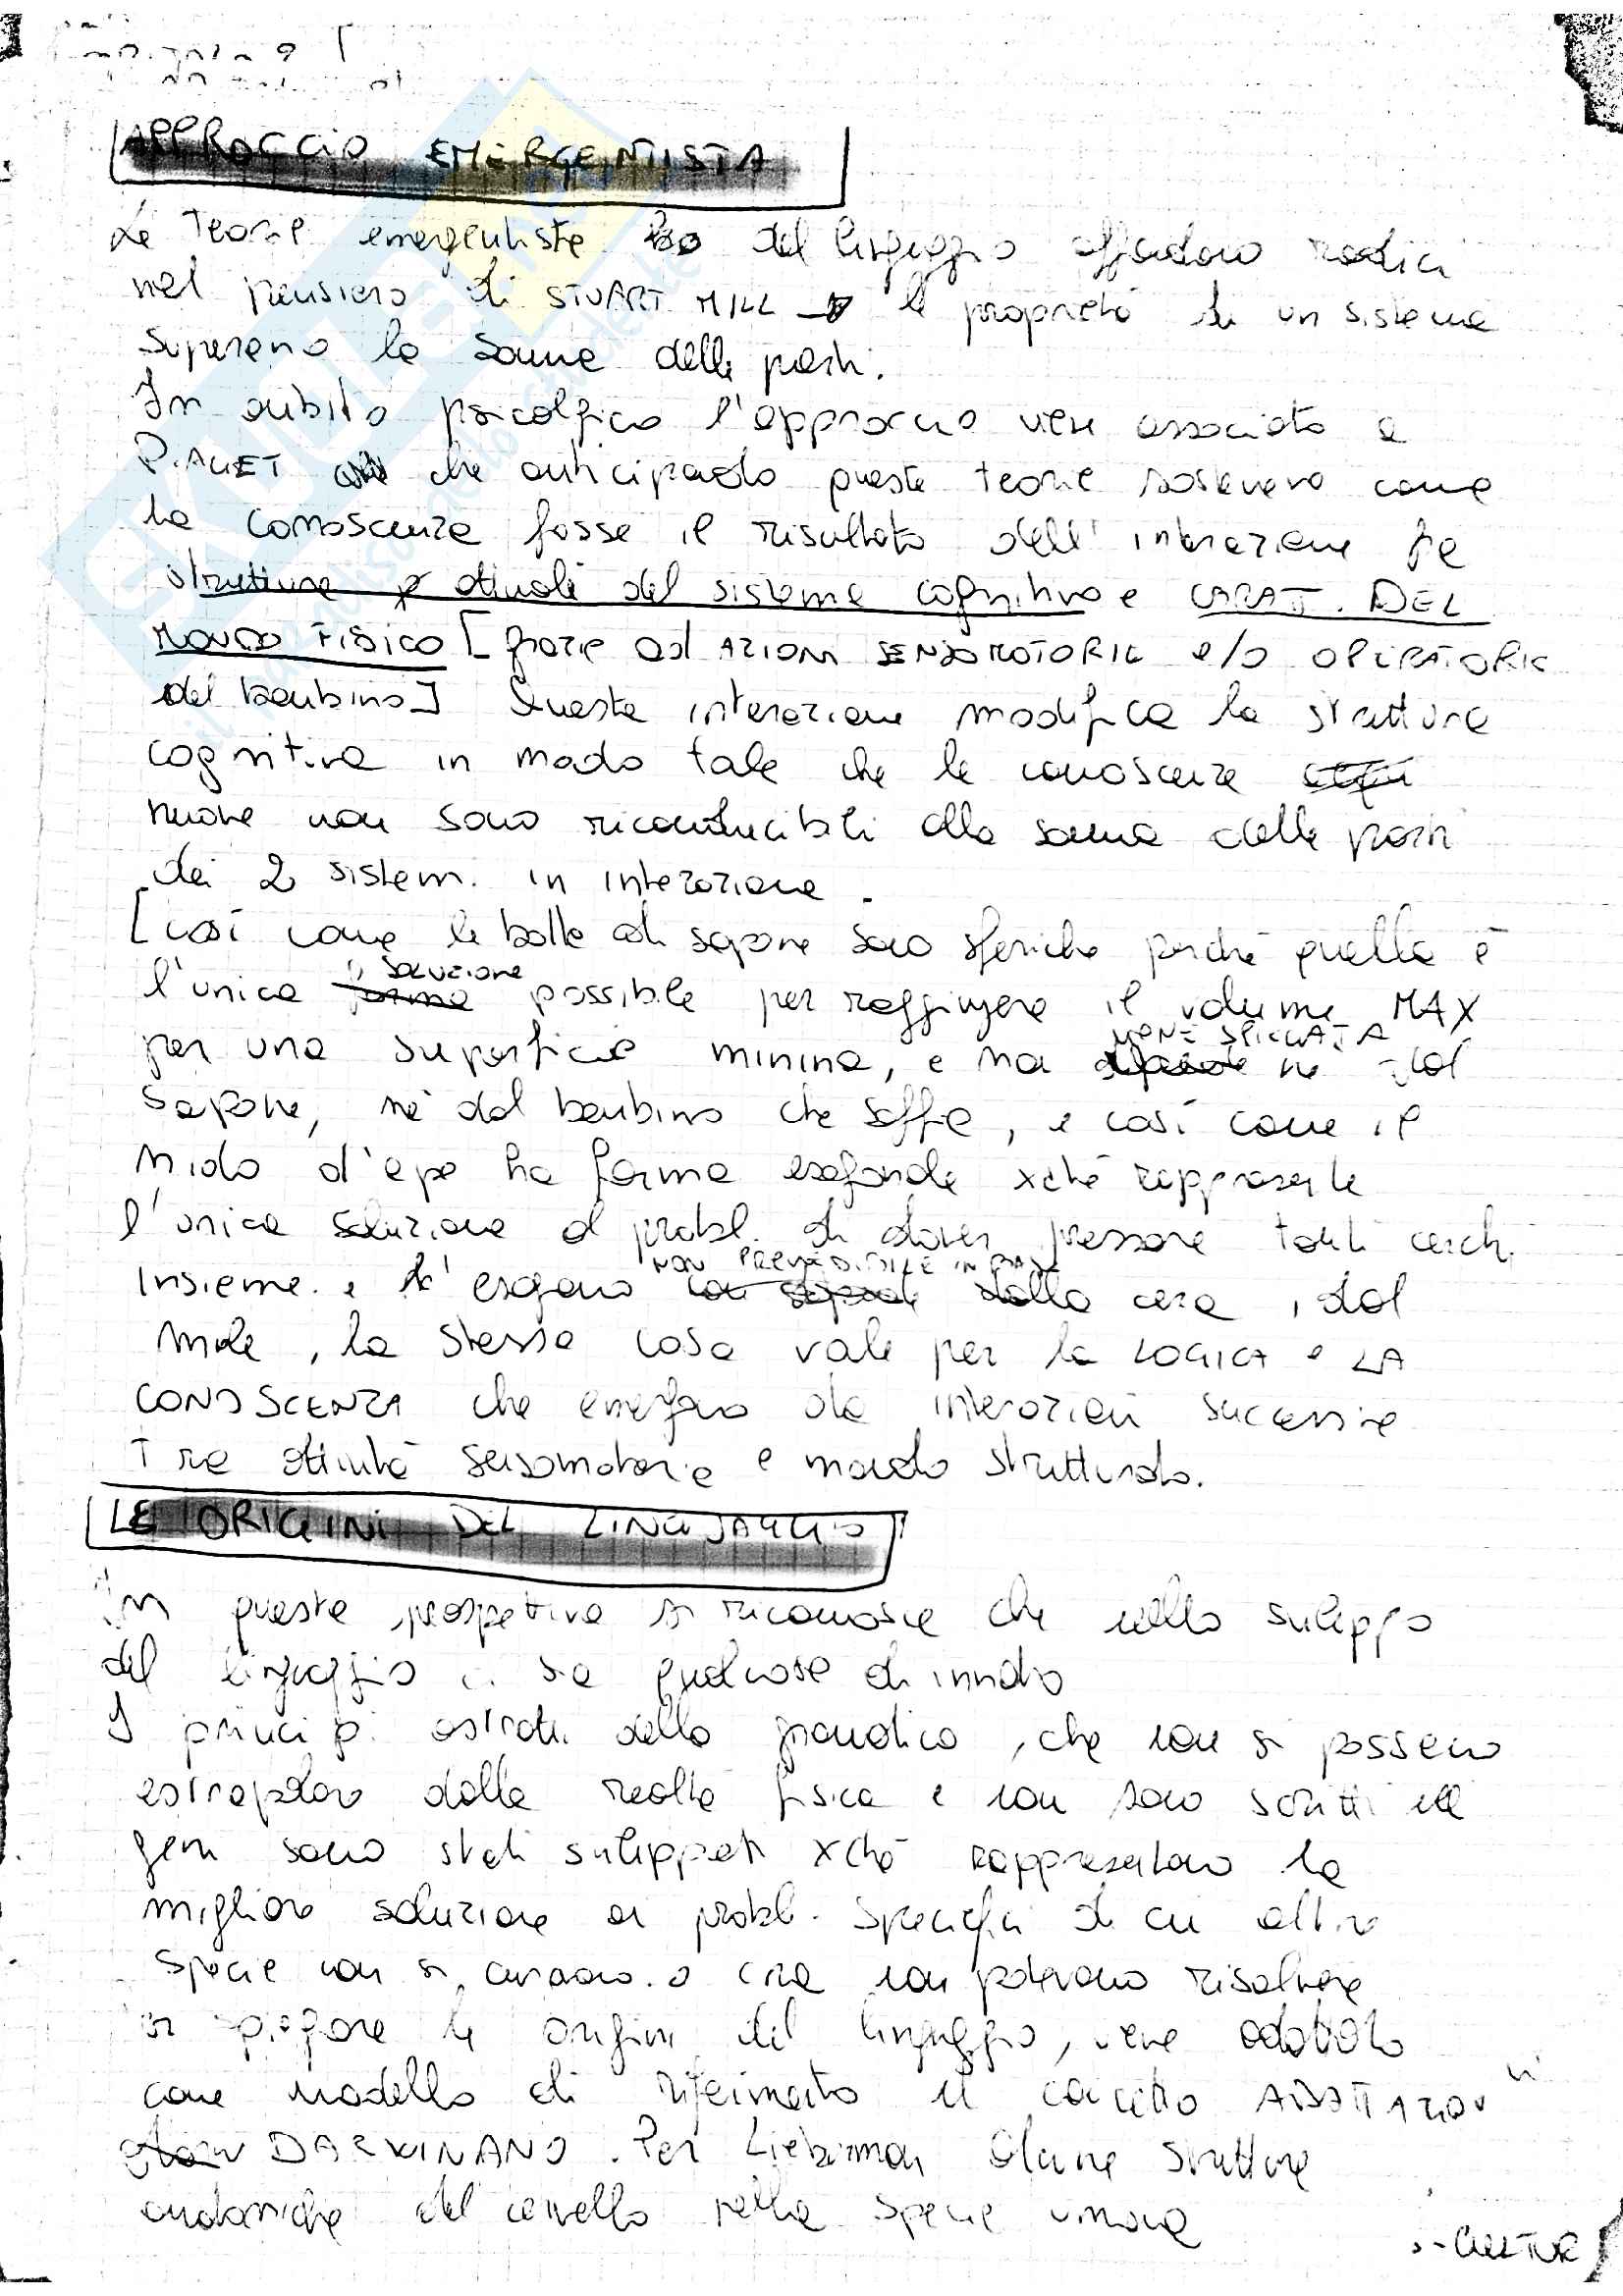 APPROCCIO EMERGENTISTA
Le teorie emergentiste del linguaggio affondano radici
nel pensiero di STUART MILL → le proprietà di un sistema
superano la somma delle parti.
In ambito psicolgico l'approccio viene associato a
PIAGET che anticipando queste teorie sosteneva come
la conoscenza fosse il risultato dell'interazione fra
strutture attuali del sistema cognitivo e CARATT. DEL
MONDO FISICO [grazie ad AZIONI SENSOMOTORIE e/o OPERATORIE
del bambino] Questa interazione modifica la struttura
cognitiva in modo tale che le conoscenze
nuove non sono riconducibili alla somma delle parti
dei 2 sistemi in interazione.
[così come le bolle di sapone sono sferiche perchè quella è
l'unica SOLUZIONE possibile per raggiungere il volume MAX
per una superficie minima, e ma né dal
sapone, nè dal bambino che soffia, e così come il
nido d'ape ha forma esagonale xchè rappresenta
l'unica soluzione al probl. di dover pressare tanti cerchi
NON PREVEDIBILE IN BASE
insieme. e l'esagono dalla cera, dal
miele, la stessa cosa vale per la LOGICA e LA
CONOSCENZA che emergono da interazioni successive
tra attività sensomotorie e mondo strutturato.
LE ORIGINI DEL LINGUAGGIO
In questa prospettiva si riconosce che nello sviluppo
del linguaggio ci sia qualcosa di innato
I principi astratti della grammatica, che non si possono
estrapolare dalla realtà fisica e non sono scritti nei
geni sono stati sviluppati xchè rappresentano la
migliore soluzione ai probl. specifici di cui altre
specie non si curano o che non potevano risolvere
spiegare le origini del linguaggio, viene adottato
come modello di riferimento il concetto ADATTAZION
DARWINANO. Per Lieberman alcune strutture
anatomiche del cervello nella specie umana
- CULTUR